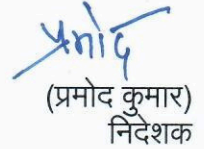 प्रमोद
(प्रमोद कुमार)
निदेशक